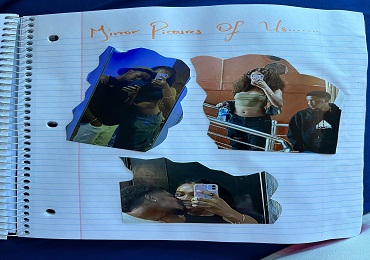 Mirror Pictures Of Us.......